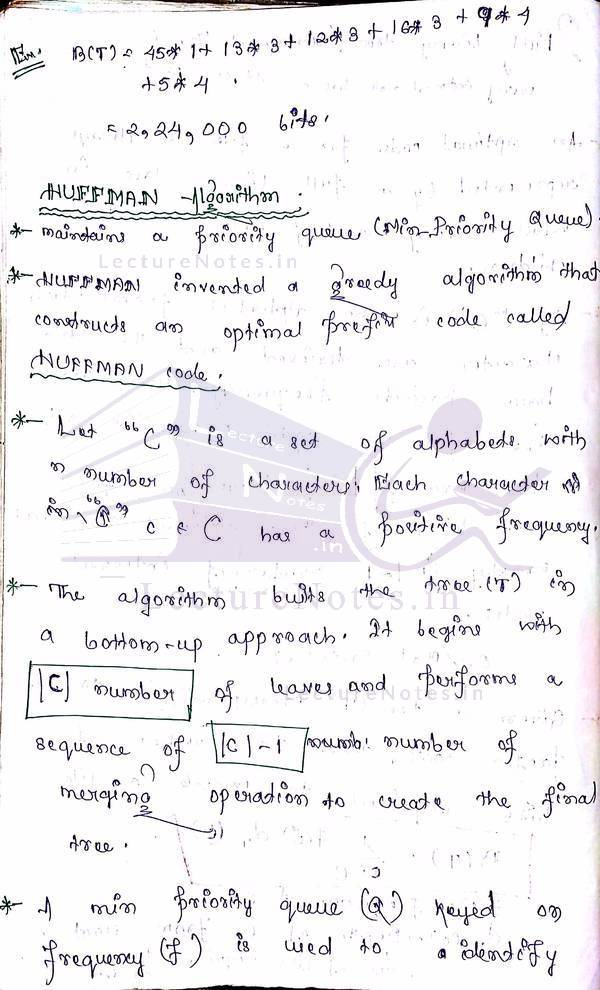 Ex. B(T) = 45*1 + 13*3 + 12*3 + 16*3 + 9*4
+5*4.
= 2,24,000 bits.
HUFFMAN Algorithm.
*- maintains a priority queue (Min-Priority Queue).
LectureNotes.in
*- HUFFMAN invented a greedy algorithm that
constructs an optimal prefix code called
HUFFMAN code.
*- Let "C" is a set of alphabets with
n number of characters. Each character
in c ∈ C has a positive frequency.
Lecture Notes .in
*- The algorithm builts the tree (T) in
LectureNotes.in
a bottom-up approach. It begins with
|C| number of leaves and performs a
LectureNotes.in
sequence of |C|-1 numb. number of
merging operation to create the final
tree.
*- A min priority queue (Q) keyed on
frequency (f) is used to a identify